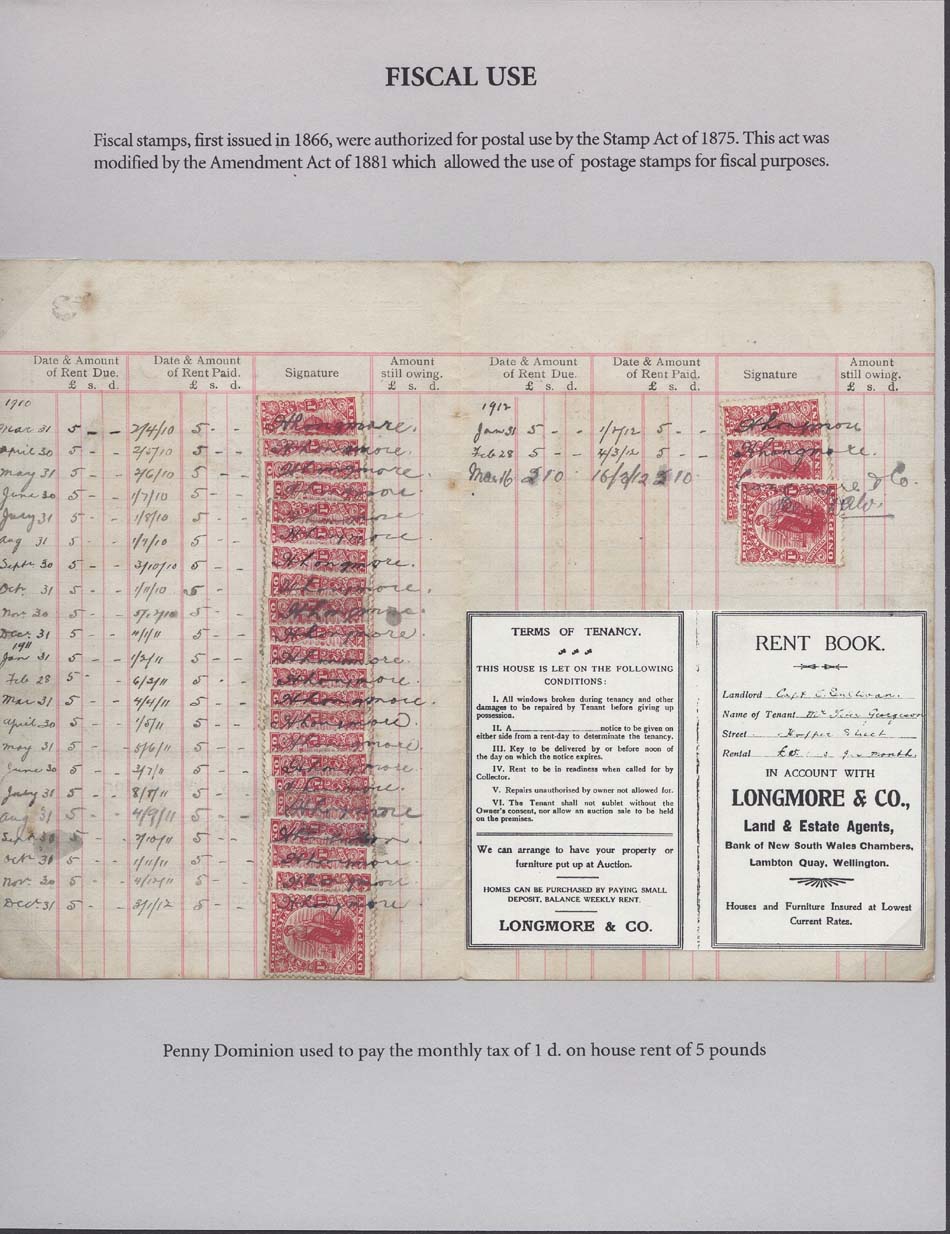 FISCAL USE
Fiscal stamps, first issued in 1866, were authorized for postal use by the Stamp Act of 1875. This act was
modified by the Amendment Act of 1881 which allowed the use of postage stamps for fiscal purposes.
Date & Amount of Rent Due. £ s. d. Date & Amount of Rent Paid. £ s. d. Signature Amount still owing. £ s. d.
1910
Mar 31 5 - - 2/4/10 5 - - H Longmore.
April 30 5 - - 2/5/10 5 - - H Longmore.
May 31 5 - - 2/6/10 5 - - H Longmore.
June 30 5 - - 1/7/10 5 - - H Longmore.
July 31 5 - - 1/8/10 5 - - H Longmore
Aug 31 5 - - 1/9/10 5 - - H Longmore
Septr 30 5 - - 3/10/10 5 - - H Longmore.
Octr 31 5 - - 1/11/10 5 - - H Longmore.
Nov. 30 5 - - 5/12/10 5 - - H Longmore.
Decr 31 5 - - 5 - - H Longmore.
1911
Jan 31 5 - - 1/2/11 5 - - H Longmore.
Feb 28 5 - 6/3/11 5 - - H Longmore.
Mar 31 5 - - 4/4/11 5 - - H Longmore.
April 30 5 - - 1/5/11 5 - - H Longmore.
May 31 5 - - 5/6/11 5 - - H Longmore.
June 30 5 - - 3/7/11 5 - - H Longmore.
July 31 5 - - 8/8/11 5 - - H Longmore.
Aug 31 5 - - 4/9/11 5 - - H Longmore
Sept 30 5 - - 2/10/11 5 - -
Octr 31 5 - - 1/11/11 5 - - H Longmore.
Nov. 30 5 - - 4/12/11 5 - - H Longmore.
Decr 31 5 - - 3/1/12 5 - - H Longmore.
ONE PENNY
Date & Amount of Rent Due. £ s. d. Date & Amount of Rent Paid. £ s. d. Signature Amount still owing. £ s. d.
1912
Jan 31 5 - - 1/2/12 5 - - H Longmore
Feb 28 5 - - 4/3/12 5 - - H Longmore.
Mar 16 2 10 2 10 & Co.
ONE PENNY
TERMS OF TENANCY.
THIS HOUSE IS LET ON THE FOLLOWING
CONDITIONS:
I. All windows broken during tenancy and other
damages to be repaired by Tenant before giving up
possession.
II. A notice to be given on
either side from a rent-day to determinate the tenancy.
III. Key to be delivered by or before noon of
the day on which the notice expires.
IV. Rent to be in readiness when called for by
Collector.
V. Repairs unauthorised by owner not allowed for.
VI. The Tenant shall not sublet without the
Owner's consent, nor allow an auction sale to be held
on the premises.
We can arrange to have your property or
furniture put up at Auction.
HOMES CAN BE PURCHASED BY PAYING SMALL
DEPOSIT, BALANCE WEEKLY RENT.
LONGMORE & CO.
RENT BOOK.
Landlord Capt
Name of Tenant
Street Hopper Street
Rental month
IN ACCOUNT WITH
LONGMORE & CO.,
Land & Estate Agents,
Bank of New South Wales Chambers,
Lambton Quay, Wellington.
Houses and Furniture Insured at Lowest
Current Rates.
Penny Dominion used to pay the monthly tax of 1 d. on house rent of 5 pounds